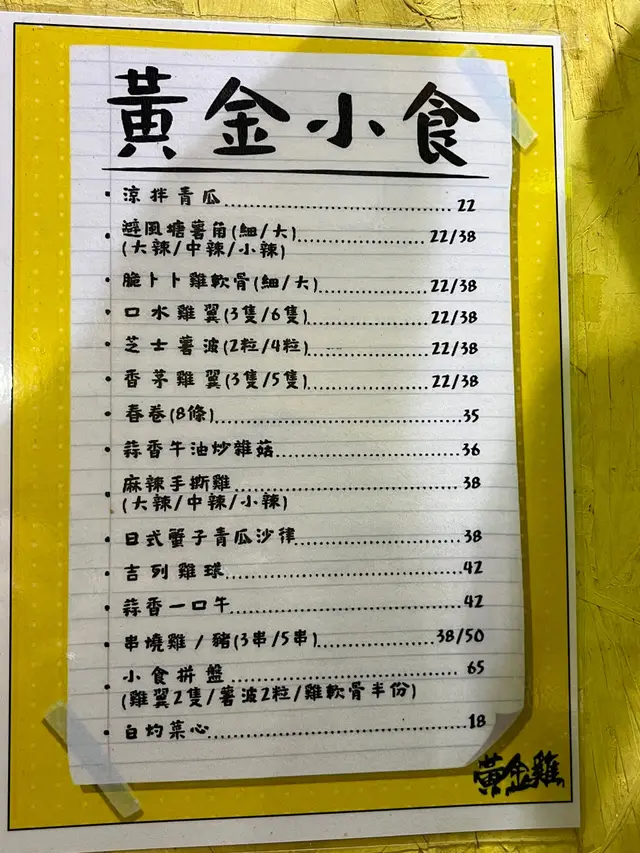 黃金小食
• 涼拌青瓜 22
• 避風塘薯角(細/大) 22/38
(大辣/中辣/小辣)
• 脆卜卜雞軟骨(細/大) 22/38
• 口水雞翼(3隻/6隻) 22/38
• 芝士薯波(2粒/4粒) 22/38
• 香茅雞翼(3隻/5隻) 22/38
• 春卷(8條) 35
• 蒜香牛油炒雜菇 36
• 麻辣手撕雞 38
(大辣/中辣/小辣)
• 日式蟹子青瓜沙律 38
• 吉列雞球 42
• 蒜香一口牛 42
• 串燒雞/豬(3串/5串) 38/50
• 小食拼盤 65
(雞翼2隻/薯波2粒/雞軟骨半份)
• 白灼菜心 18
黃金雞